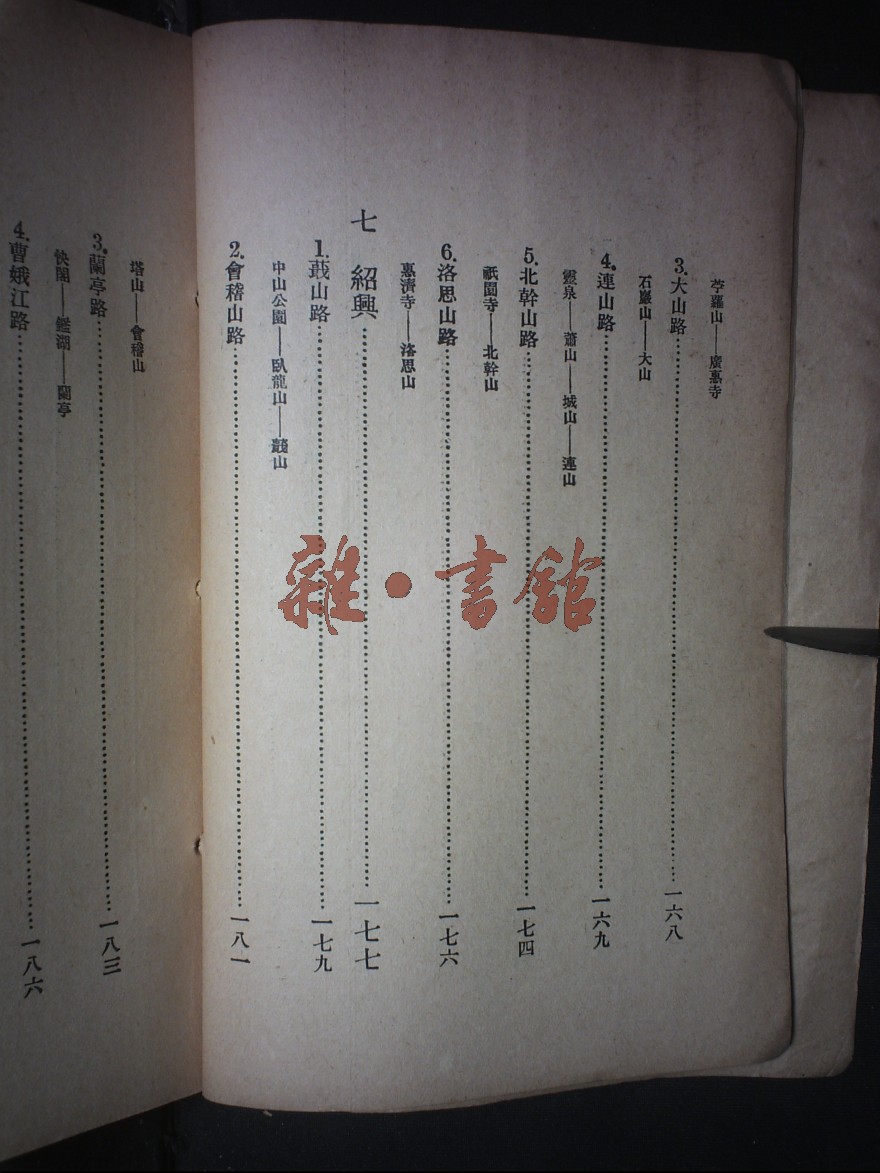 苧羅山——廣惠寺
3. 大山路……一六八
石巖山——大山
4. 連山路……一六九
靈泉——蕭山——城山——連山
5. 北幹山路……一七四
祇園寺——北幹山
6. 洛思山路……一七六
惠濟寺——洛思山
七 紹興……一七七
1. 蕺山路……一七九
中山公園——臥龍山——蕺山
2. 會稽山路……一八一
塔山——會稽山
3. 蘭亭路……一八三
快閣——鑑湖——蘭亭
4. 曹娥江路……一八六
雜·書館